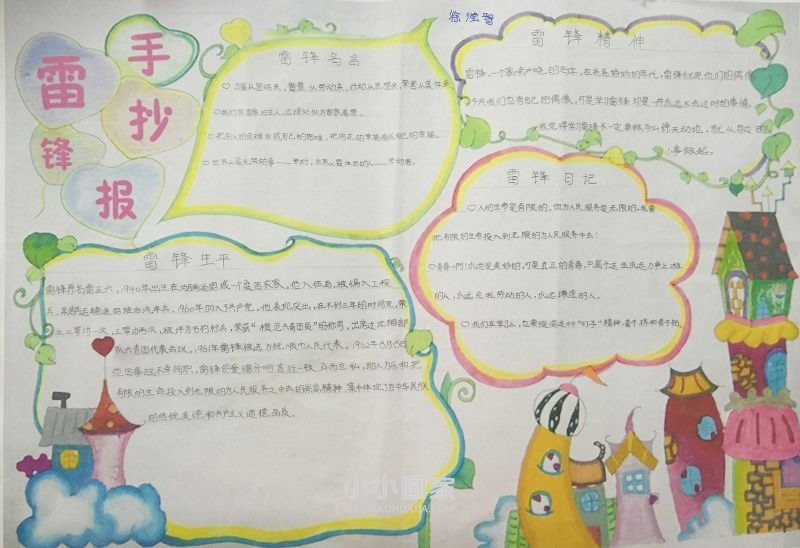 雷锋手抄报
徐浩智
雷锋名言
力量从团结来，智慧从劳动来，行动从思想来，荣誉从集体来
我们是国家的主人，应该处处为国家着想。
把别人的困难当成自己的困难，把同志的幸福看成自己的幸福。
世界上最光荣的事——劳动，世界上最体面的人——劳动者。
雷锋精神
雷锋，一个家喻户晓，的名字，在爸爸妈妈的年代，雷锋就是他们的偶像
今天我们也有自己的偶像，可是学习雷锋却是一件永远不会过时的事情。
我觉得学习雷锋不一定要做与以惊天动地，就从身边的
小事做起。
雷锋日记
人的生命是有限的，但为人民服务是无限的，我要
把有限的生命投入到无限的为人民服务中去！
青春啊！永远是美好的，可是真正的青春，只属于这些永远力争上游
的人，永远忘我劳动的人，永远谦虚的人。
我们在学习上，也要提倡这种"钉子"精神，善于挤和善于钻。
雷锋生平
雷锋原名雷正兴，1940年出生在湖南省望城一个贫困农家。他入伍后，被编入工程
兵，某部运输连四班当汽车兵。1960年加入共产党。他表现突出，在不到三年的时间里，荣
立二等功一次，三等功两次，被评为节约标兵，荣获"模范共青团员"的称号，出席过沈阳部
队共青团代表会议。1961年雷锋被选为抚顺市人民代表。1962年8月15日
他因事故不幸殉职，雷锋的爱憎分明，言行一致，公而忘私，助人为乐和把
有限的生命投入到无限的为人民服务之中去的崇高精神，集中体现了中华民族
的传统美德和共产主义道德品质。
小小画家
CAOXIAOHUAJIA.COM